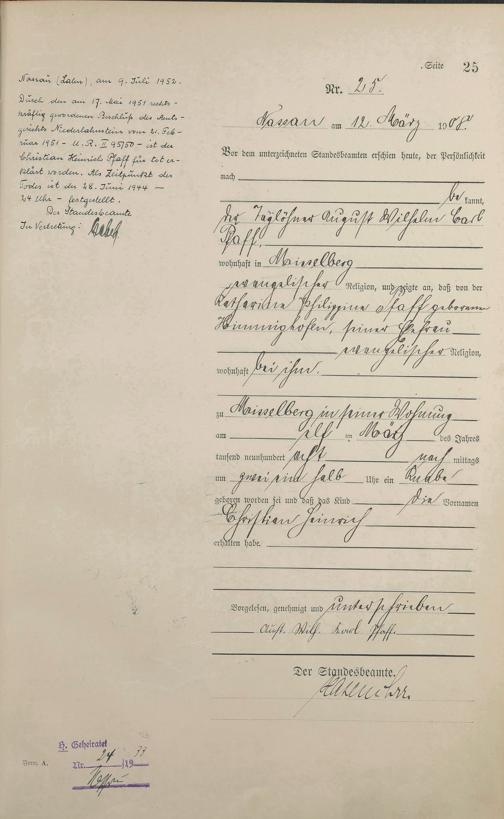 Seite 25
Nr. 25.
Nassau am 12. März 1908.
Vor dem unterzeichneten Standesbeamten erschien heute, der Persönlichkeit
nach
be kannt,
der Taglöhner August Wilhelm Carl
Pfaff,
wohnhaft in Misselberg
evangelischer Religion, und zeigte an, daß von der
Katharine Philippine Pfaff geborenen
Himmighofen, seiner Ehefrau
evangelischer Religion,
wohnhaft bei ihm.
zu Misselberg in seiner Wohnung
am elf ten März des Jahres
tausend neunhundert acht nach mittags
um zwei ein halb Uhr ein Knabe
geboren worden sei und daß das Kind die Vornamen
Christian Heinrich
erhalten habe.
Vorgelesen, genehmigt und unterschrieben
Aust. Wilh. Karl Pfaff.
Der Standesbeamte.
Nassau (Lahn), am 9. Juli 1952.
Durch den am 17. Mai 1951 rechts-
kräftig gewordenen Beschluß des Amts-
gerichts Niederlahnstein vom 21. Feb-
ruar 1951 - U. R. II 95/50 - ist der
Christian Heinrich Pfaff für tot er-
klärt worden. Als Zeitpunkt des
Todes ist der 28. Juni 1944 -
24 Uhr - festgestellt.
Der Standesbeamte
In Vertretung:
H. Geheiratet
Nr. 24 /19 33
Nassau
Form. A.